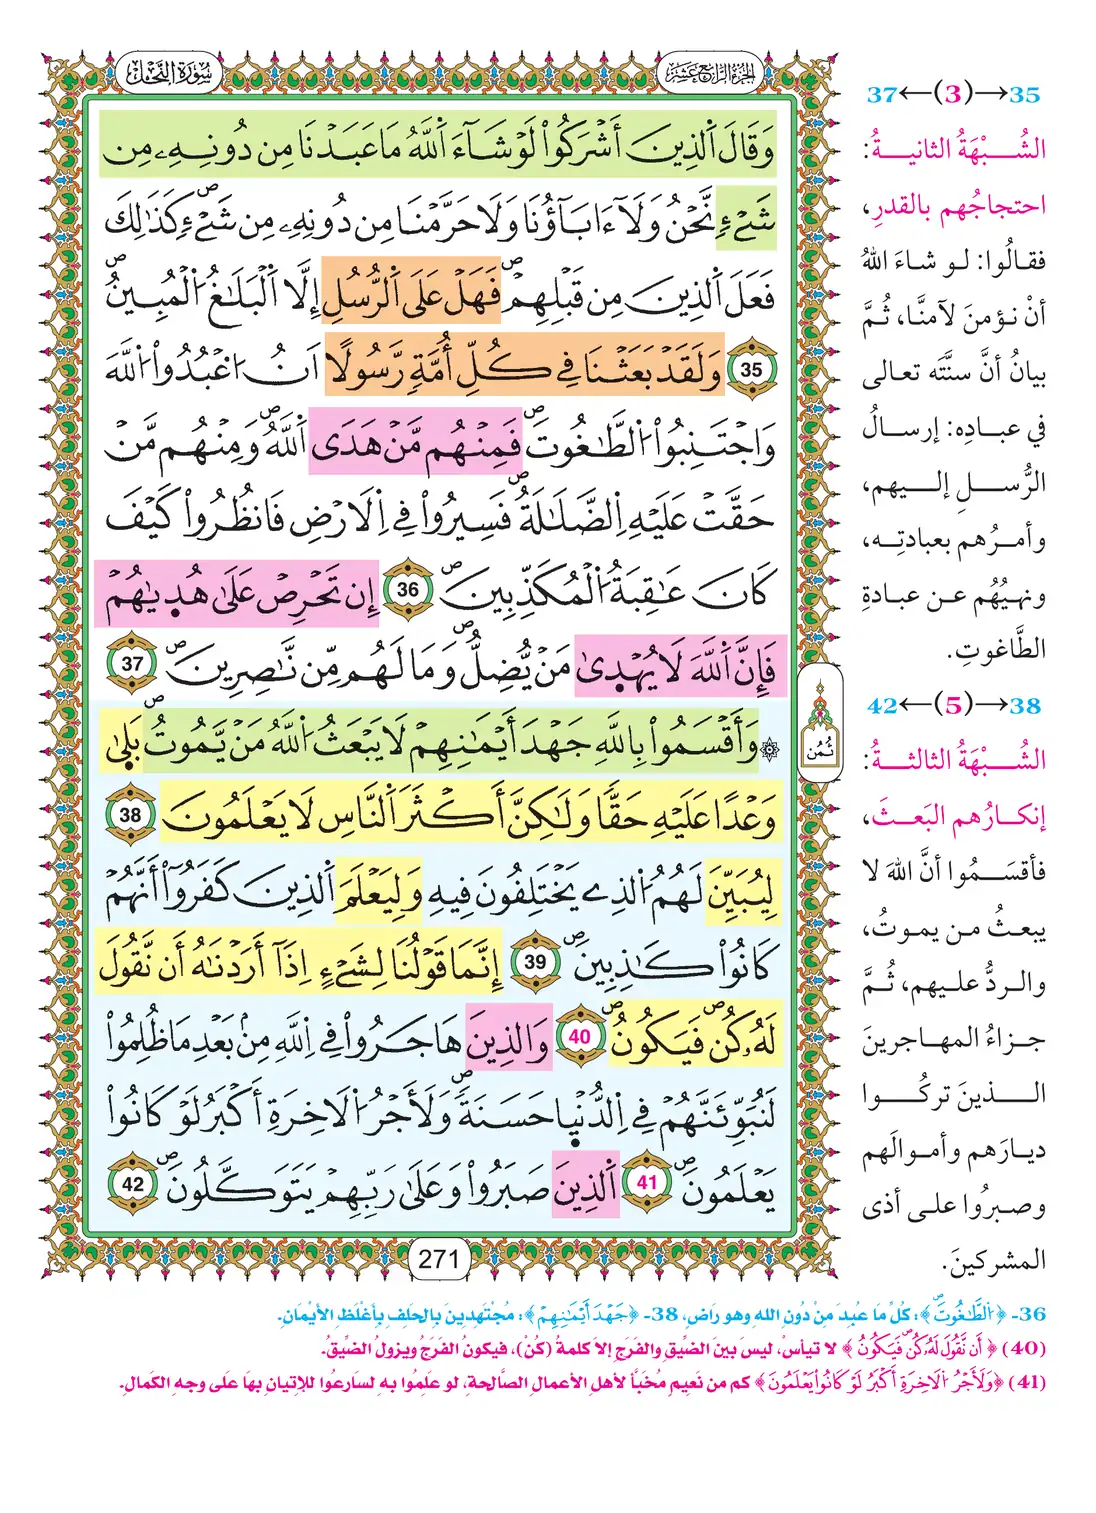 سُورَةُ النَّحْلِ
الجُزْءُ الرَّابِعَ عَشَرَ
وَقَالَ اَ۬لذِينَ أَشْرَكُواْ لَوْ شَآءَ اَ۬للَّهُ مَا عَبَدْنَا مِن دُونِهِۦ مِن
شَےْءٖ نَّحْنُ وَلَآ ءَابَآؤُنَا وَلَا حَرَّمْنَا مِن دُونِهِۦ مِن شَےْءٖۖ كَذَٰلِكَ
فَعَلَ اَ۬لذِينَ مِن قَبْلِهِمْۖ فَهَلْ عَلَى اَ۬لرُّسُلِ إِلَّا اَ۬لْبَلَٰغُ اُ۬لْمُبِينُۖ
35 وَلَقَدْ بَعَثْنَا فِے كُلِّ أُمَّةٖ رَّسُولًا اَنُ اُ۟عْبُدُواْ اُ۬للَّهَ
وَاجْتَنِبُواْ اُ۬لطَّٰغُوتَۖ فَمِنْهُم مَّنْ هَدَى اَ۬للَّهُۖ وَمِنْهُم مَّنْ
حَقَّتْ عَلَيْهِ اِ۬لضَّلَٰلَةُۖ فَسِيرُواْ فِے اِ۬لَارْضِ فَانظُرُواْ كَيْفَ
كَانَ عَٰقِبَةُ اُ۬لْمُكَذِّبِينَۖ 36 إِن تَحْرِصْ عَلَىٰ هُد۪يٰهُمْ
فَإِنَّ اَ۬للَّهَ لَا يُهْد۪ىٰ مَنْ يُّضِلُّۖ وَمَا لَهُم مِّن نَّٰصِرِينَۖ 37
۞ وَأَقْسَمُواْ بِاللَّهِ جَهْدَ أَيْمَٰنِهِمْ لَا يَبْعَثُ اُ۬للَّهُ مَنْ يَّمُوتُۖ بَل۪ىٰ
وَعْدًا عَلَيْهِ حَقّٗا وَلَٰكِنَّ أَكْثَرَ اَ۬لنَّاسِ لَا يَعْلَمُونَ 38
لِيُبَيِّنَ لَهُمُ اُ۬لذِے يَخْتَلِفُونَ فِيهِ وَلِيَعْلَمَ اَ۬لذِينَ كَفَرُوٓاْ أَنَّهُمْ
كَانُواْ كَٰذِبِينَۖ 39 إِنَّمَا قَوْلُنَا لِشَےْءٍ اِذَآ أَرَدْنَٰهُ أَن نَّقُولَ
لَهُۥ كُنۖ فَيَكُونُۖ 40 وَالذِينَ هَاجَرُواْ فِے اِ۬للَّهِ مِنۢ بَعْدِ مَا ظُلِمُواْ
لَنُبَوِّئَنَّهُمْ فِے اِ۬لدُّنْي۪ا حَسَنَةٗۖ وَلَأَجْرُ اُ۬لَاخِرَةِ أَكْبَرُ لَوْ كَانُواْ
يَعْلَمُونَۖ 41 اَ۬لذِينَ صَبَرُواْ وَعَلَىٰ رَبِّهِمْ يَتَوَكَّلُونَۖ 42
ثُمُن
271
35→(3)←37
الشُّبْهَةُ الثانيةُ:
احتجاجُهم بالقدرِ،
فقالُوا: لو شاءَ اللهُ
أنْ نؤمنَ لآمنَّا، ثُمَّ
بيانُ أنَّ سنَّتَه تعالى
في عبادِه: إرسالُ
الرُّسلِ إليهم،
وأمرُهم بعبادتِه،
ونهيُهُم عن عبادةِ
الطَّاغوتِ.
38→(5)←42
الشُّبْهَةُ الثالثةُ:
إنكارُهم البَعثَ،
فأقسَمُوا أنَّ اللهَ لا
يبعثُ من يموتُ،
والردُّ عليهم، ثُمَّ
جزاءُ المهاجرينَ
الذينَ تركُوا
ديارَهم وأموالَهم
وصبرُوا على أذى
المشركينَ.
36- ﴿اُ۬لطَّٰغُوتَۖ﴾: كُلُّ مَا عُبِدَ مِنْ دُونِ اللهِ وهو رَاضٍ، 38- ﴿جَهْدَ أَيْمَٰنِهِمْ﴾: مُجْتَهِدِينَ بِالحَلِفِ بِأَغْلَظِ الأَيْمَانِ.
(40) ﴿أَن نَّقُولَ لَهُۥ كُنۖ فَيَكُونُ﴾ لا تيأسْ، ليس بينَ الضِّيقِ والفَرَجِ إلا كلمةُ (كُنْ)، فيكونُ الفَرَجُ ويزولُ الضِّيقُ.
(41) ﴿وَلَأَجْرُ اُ۬لَاخِرَةِ أَكْبَرُ لَوْ كَانُواْ يَعْلَمُونَ﴾ كم من نَعِيمٍ مُخَبَّأٍ لأهلِ الأعمالِ الصَّالحةِ، لو علِمُوا به لسارعُوا للإتيانِ بهَا علَى وجهِ الكَمالِ.